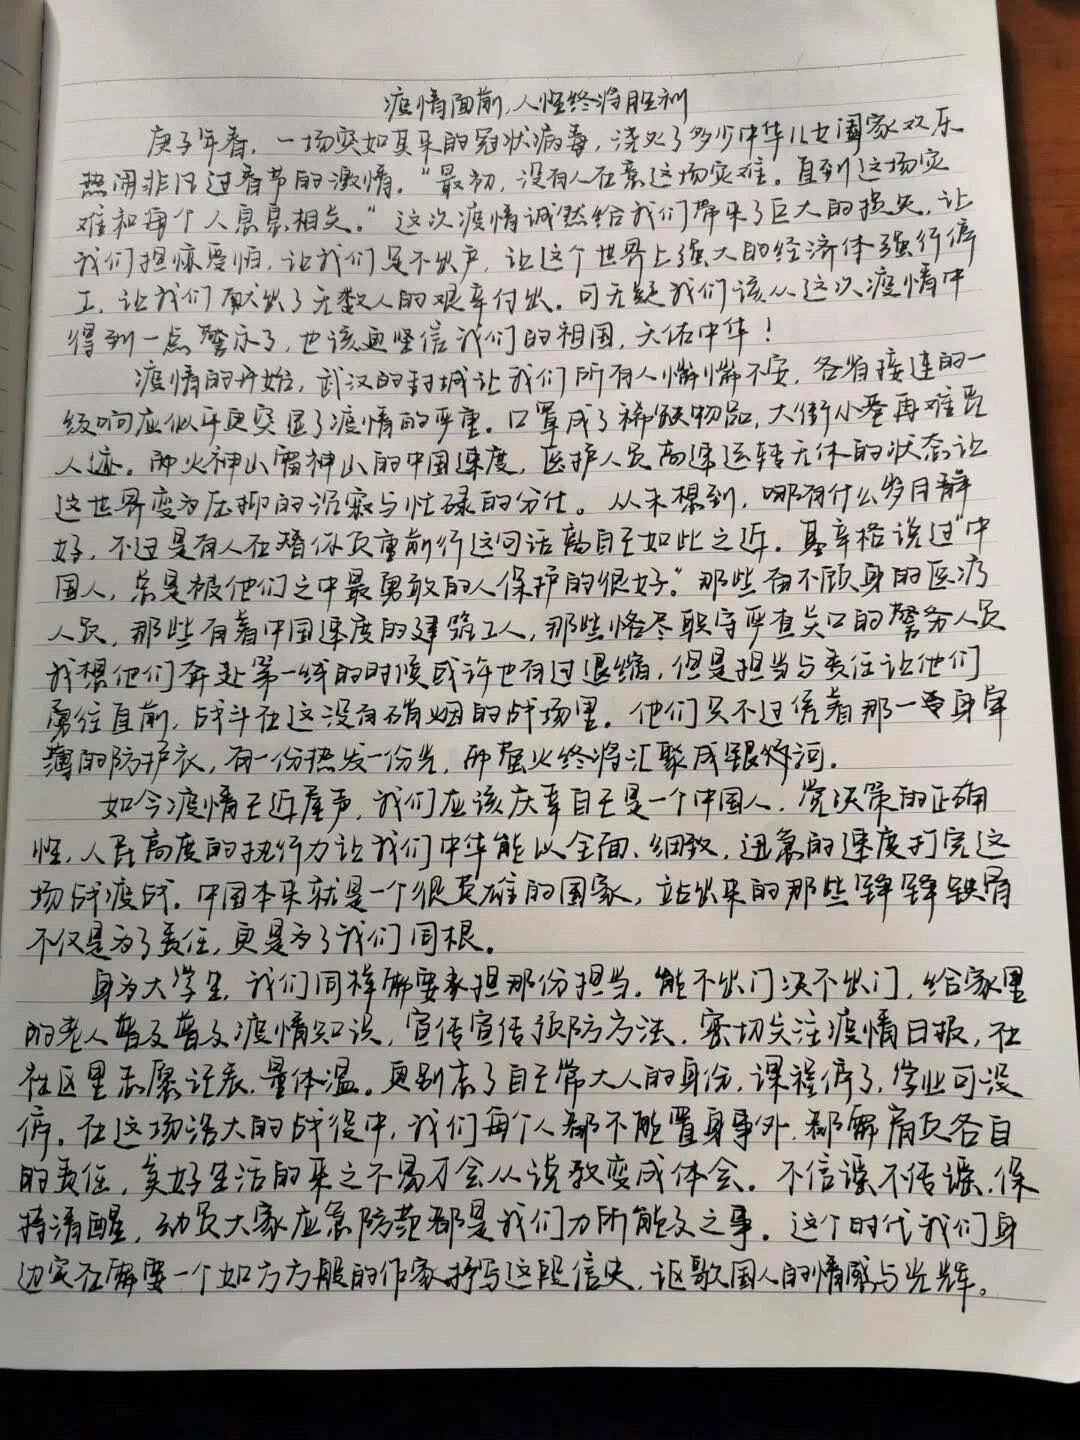 疫情面前,人性终将胜利
庚子年春,一场突如其来的冠状病毒,浇灭了多少中华儿女阖家欢乐
热闹非凡过春节的激情。"最初,没有人在意这场灾难。直到这场灾
难和每个人息息相关。"这次疫情诚然给我们带来了巨大的损失,让
我们担惊受怕,让我们足不出户,让这个世界上强大的经济体强行停
工,让我们献出了无数人的艰辛付出。可无疑我们该从这次疫情中
得到一点警示了,也该更坚信我们的祖国,天佑中华!
疫情的开始,武汉的封城让我们所有人惴惴不安,各省接连的一
级响应似乎更突显了疫情的严重。口罩成了稀缺物品,大街小巷再难觅
人迹。而火神山雷神山的中国速度,医护人员高速运转无休的状态让
这世界变为压抑的沉寂与忙碌的分化。从未想到,哪有什么岁月静
好,不过是有人在替你负重前行这句话离自己如此之近。基辛格说过"中
国人,总是被他们之中最勇敢的人保护的很好。"那些奋不顾身的医疗
人员,那些有着中国速度的建筑工人,那些恪尽职守严查关口的警务人员
我想他们奔赴第一线的时候或许也有过退缩,但是担当与责任让他们
勇往直前,战斗在这没有硝烟的战场里。他们只不过凭着那一身单
薄的防护衣,有一份热发一份光,而萤火终将汇聚成银河。
如今疫情已近尾声,我们应该庆幸自己是一个中国人,党决策的正确
性,人民高度的执行力让我们中华能以全面、细致、迅急的速度打完这
场战疫战。中国本来就是一个很英雄的国家,站出来的那些铮铮铁骨
不仅是为了责任,更是为了我们同根。
身为大学生,我们同样需要承担那份担当。能不出门决不出门,给家里
的老人普及普及疫情知识,宣传宣传预防方法,密切关注疫情日报,在
社区里志愿记表,量体温。更别忘了自己常大人的身份,课程停了,学业可没
停。在这场浩大的战役中,我们每个人都不能置身事外,都需肩负各自
的责任,美好生活的来之不易才会从说教变成体会。不信谣不传谣,保
持清醒,动员大家应急防范都是我们力所能及之事。这个时代我们身
边实在需要一个如方方般的作家抒写这段信史,讴歌国人的情感与光辉。